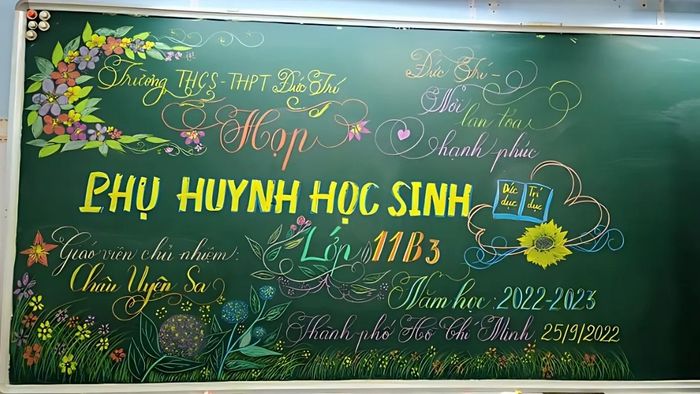 Trường THCS-THPT Đức Trí
Họp
Đức Trí -
Nơi
lan tỏa
hạnh phúc
PHỤ HUYNH HỌC SINH
Đức dục
Trí dục
Lớp 11B3
Giáo viên chủ nhiệm:
Châu Uyên Sa
Năm học: 2022-2023
Thành phố Hồ Chí Minh, 25/9/2022